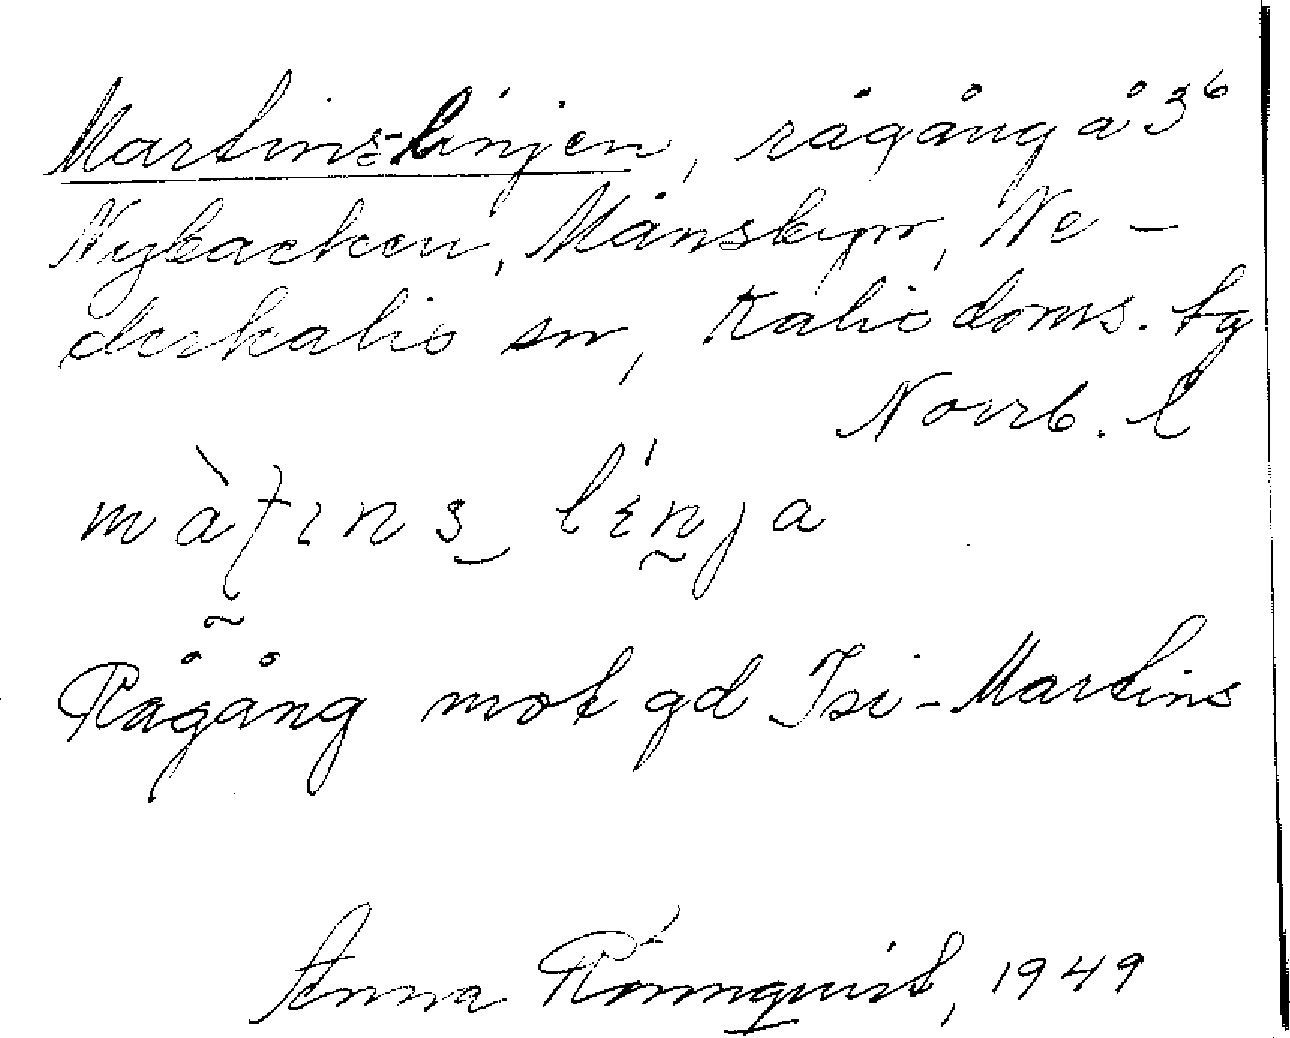 Martins-linjen, rågång å 3⁶
Nybacken, Månsbyn, Ne-
derkalix sn, Kalix doms. tg
Norrb. l
Rågång mot gd Isi-Martins
Anna Rönnquist, 1949